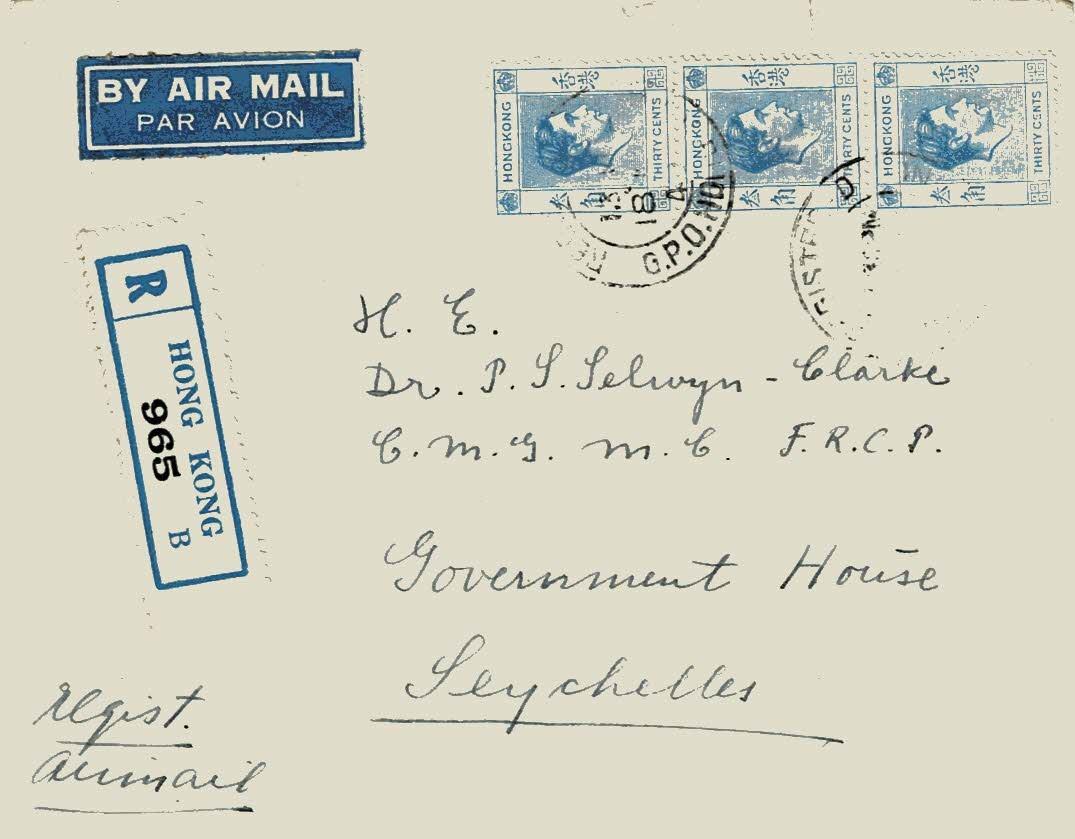 BY AIR MAIL
PAR AVION
香港
HONGKONG
THIRTY CENTS
叁角
香港
HONGKONG
THIRTY CENTS
叁角
香港
HONGKONG
THIRTY CENTS
叁角
13
18
4
G.P.O.
R
HONG KONG
965
B
H. E.
Dr. P. S. Selwyn - Clarke
C. M. G. M. C. F. R. C. P.
Government House
Seychelles
Regist.
Airmail